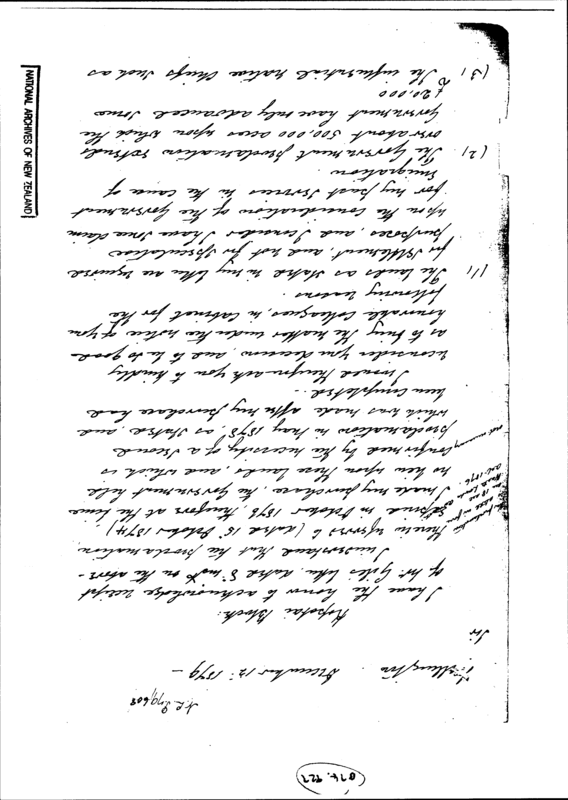 N.L.P. 79/608
Wellington December 12th 1879 —
Sir
Kopotai Block.
I have the honor to acknowledge receipt
of Mr Gill's letter dated 8th inst on the above -
I understand that the proclamation
therein referred to (dated 15th October 1874)
expired in October 1876, therefore at the time
I made my purchase, the Government held
no lien upon these lands, and which is
confirmed by the necessity of a second
proclamation in May 1878, as stated, and
which was made after my purchase had
been completed. -
I would therefore ask you to kindly
reconsider your decision, and to be so good
as to bring the matter under the notice of your
honorable Colleagues in Cabinet for the
following reasons.
(1) The lands as stated in my letter are required
for settlement, and not for speculative
purposes, and I consider I have some claim
upon the consideration of the Government
for my past services in the cause of
Emigration.
(2) The Government proclamation extends
over about 500,000 acres upon which the
Government have only advanced some
£20,000
(3) The influential native Chiefs such as
NATIONAL ARCHIVES OF NEW ZEALAND